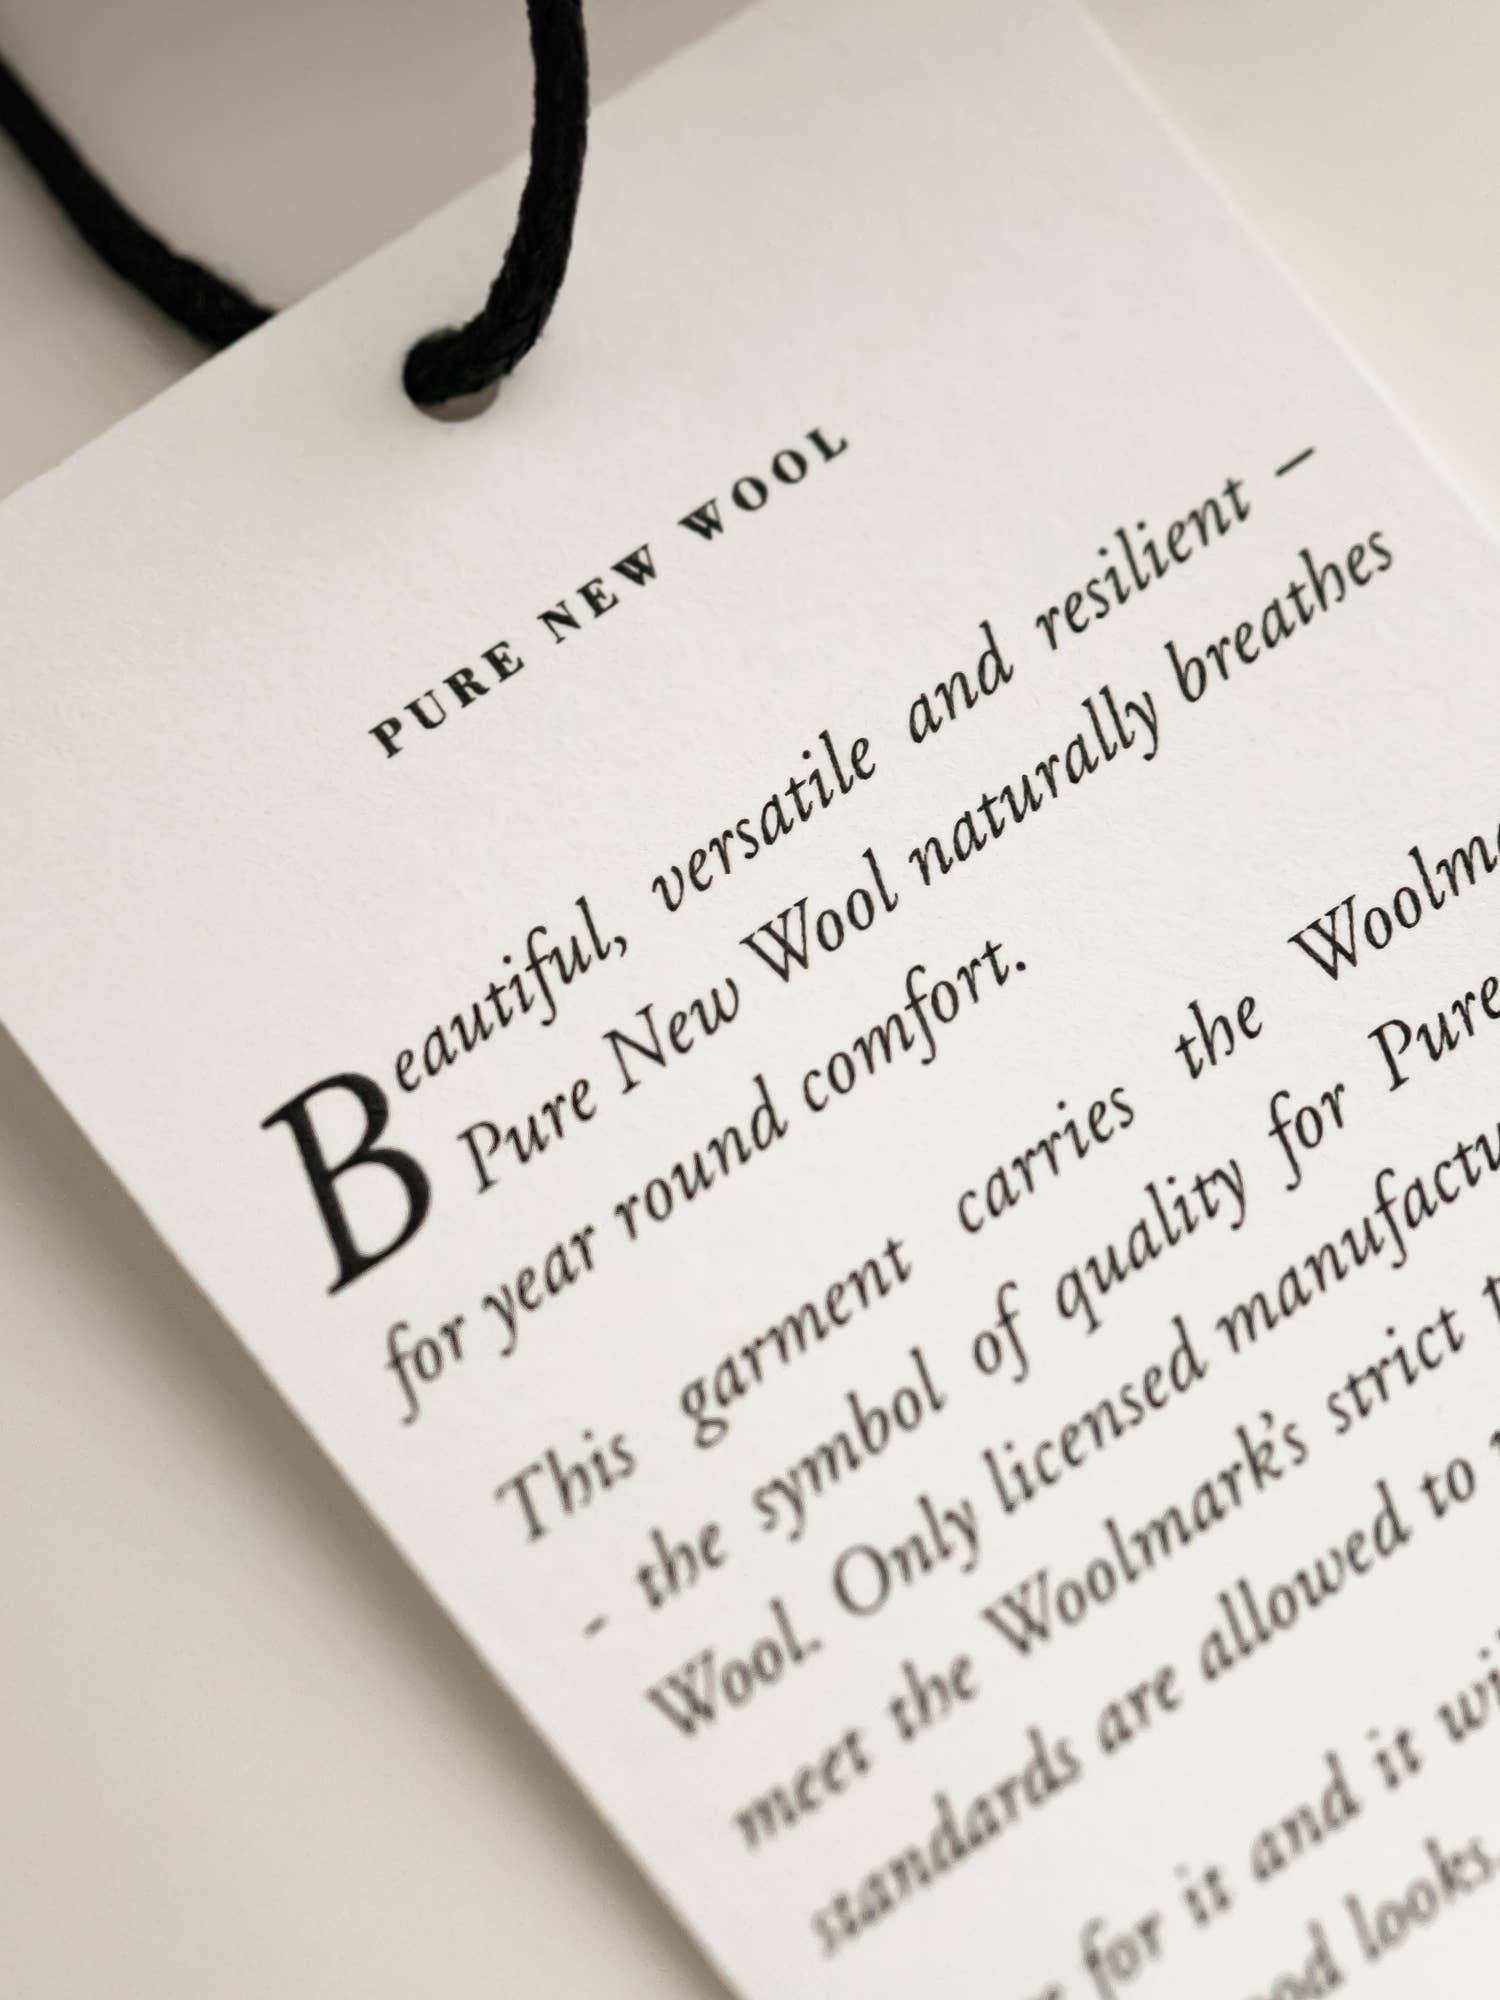 PURE NEW WOOL
Beautiful, versatile and resilient –
Pure New Wool naturally breathes
for year round comfort.
This garment carries the
- the symbol of quality for Pure
Wool. Only licensed
meet the Woolmark's strict
standards are allowed to
for it and it
looks.